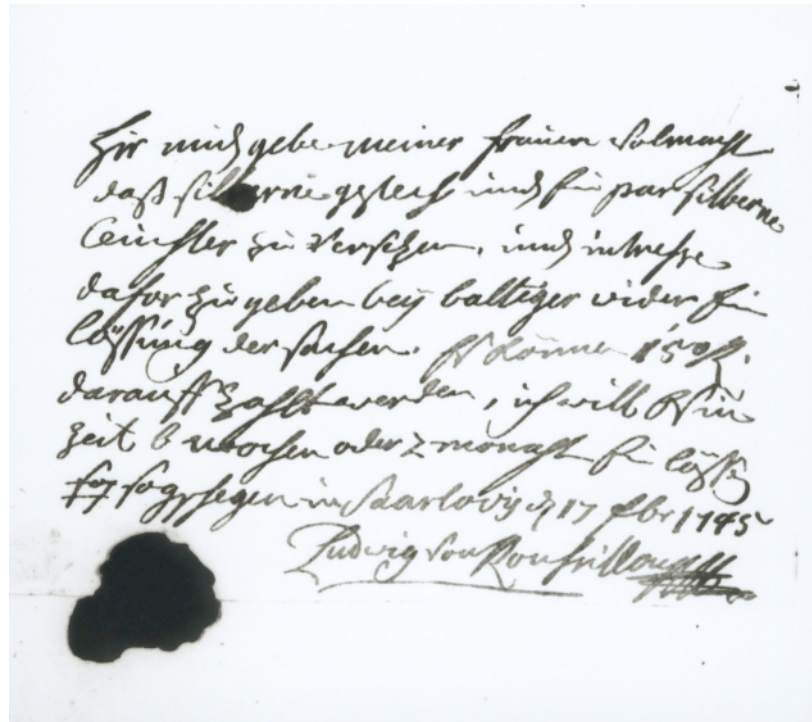 hir mich gebe meiner frauen volmacht
daß silberne gesteck und ein par silberne
leuchter zu versetzen, und intresse
dafor zu geben bey baltiger wider ein
lössung der sachen. es können 150
darauff zahlt werden, ich will es in
zeit 6 wochen oder 2 monath ein lössen
so geschehen in Saarlovis d 17 1745
Ludwig von